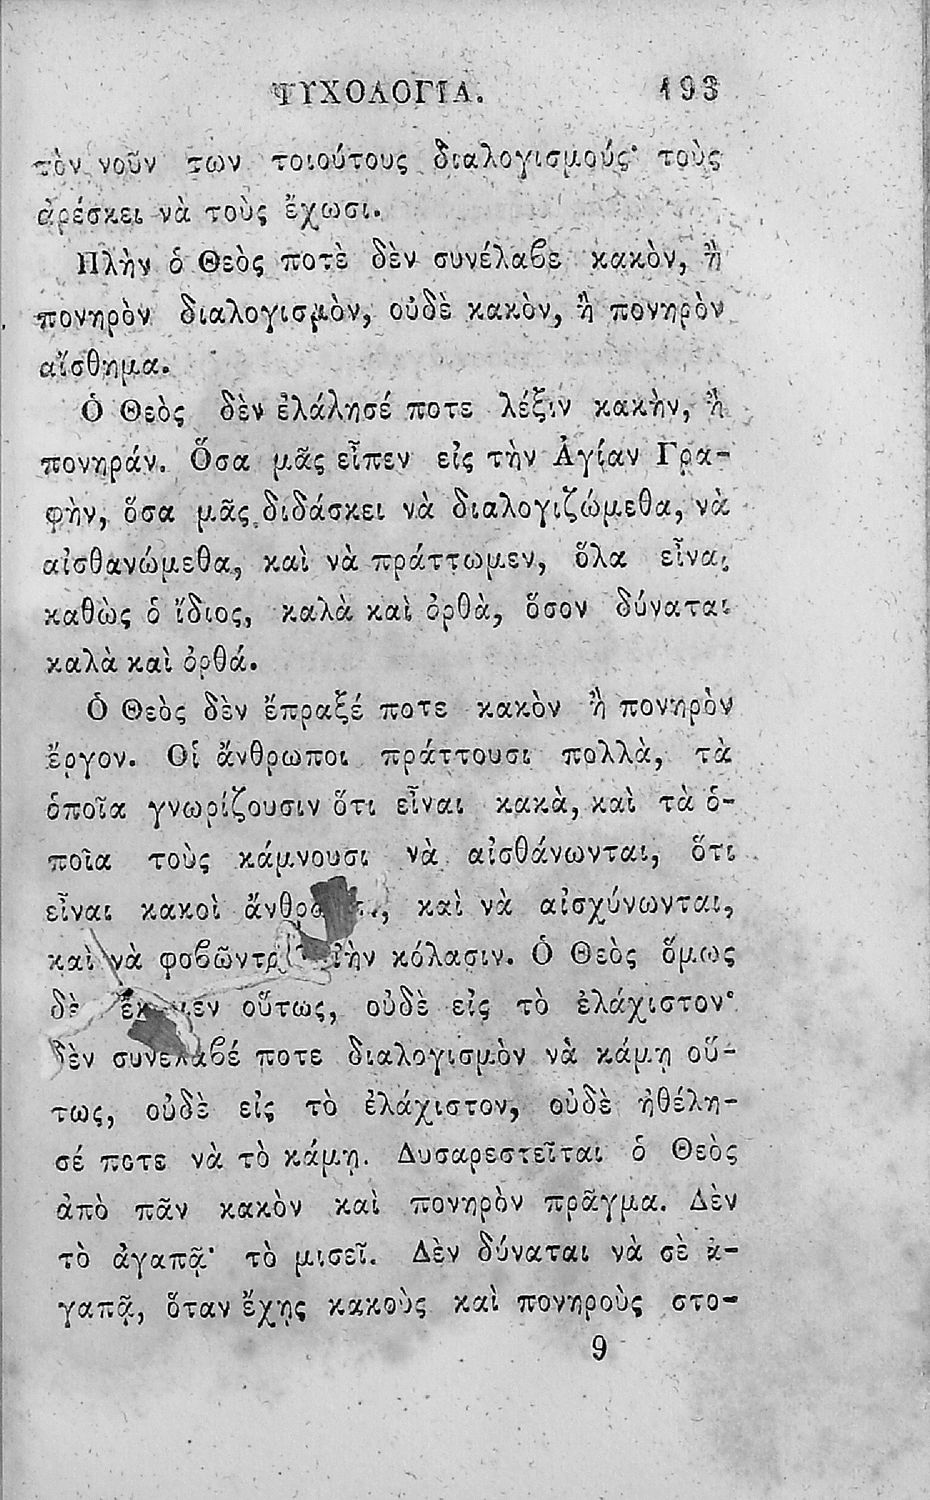 ΨΥΧΟΛΟΓΙΑ. 193
τὸν νοῦν των τοιούτους διαλογισμούς· τοὺς
ἀρέσκει νὰ τοὺς ἔχωσι.
Πλὴν ὁ Θεὸς ποτὲ δὲν συνέλαϐε κακὸν, ἢ
πονηρὸν διαλογισμὸν, οὐδὲ κακὸν, ἢ πονηρὸν
αἴσθημα.
Ὁ Θεὸς δὲν ἐλάλησέ ποτε λέξιν κακὴν, ἢ
πονηράν. Ὅσα μᾶς εἶπεν εἰς τὴν Ἁγίαν Γρα-
φὴν, ὅσα μᾶς διδάσκει νὰ διαλογιζώμεθα, νὰ
αἰσθανώμεθα, καὶ νὰ πράττωμεν, ὅλα εἶναι
καθὼς ὁ ἴδιος, καλὰ καὶ ὀρθὰ, ὅσον δύναται
καλὰ καὶ ὀρθά.
Ὁ Θεὸς δὲν ἔπραξέ ποτε κακὸν ἢ πονηρὸν
ἔργον. Οἱ ἄνθρωποι πράττουσι πολλὰ, τὰ
ὁποῖα γνωρίζουσιν ὅτι εἶναι κακὰ, καὶ τὰ ὁ-
ποῖα τοὺς κάμνουσι νὰ αἰσθάνωνται, ὅτι
εἶναι κακοὶ καὶ νὰ αἰσχύνωνται,
καὶ νὰ κόλασιν. Ὁ Θεὸς ὅμως
οὕτως, οὐδὲ εἰς τὸ ἐλάχιστον·
δὲν συνέλαϐέ ποτε διαλογισμὸν νὰ κάμῃ οὕ-
τως, οὐδὲ εἰς τὸ ἐλάχιστον, οὐδὲ ἠθέλη-
σέ ποτε νὰ τὸ κάμῃ. Δυσαρεστεῖται ὁ Θεὸς
ἀπὸ πᾶν κακὸν καὶ πονηρὸν πρᾶγμα. Δὲν
τὸ ἀγαπᾷ· τὸ μισεῖ. Δὲν δύναται νὰ σὲ ἀ-
γαπᾷ, ὅταν ἔχῃς κακοὺς καὶ πονηροὺς στο-
9